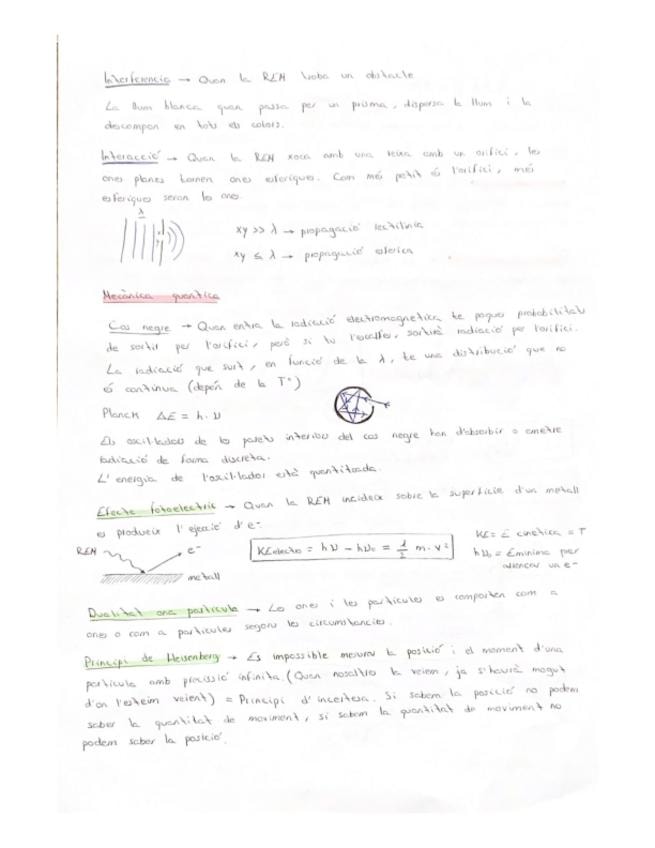 Interferencia → Quan la REM troba un obstacle
La llum blanca quan passa per un prisma, dispersa la llum i la
descompon en tots els colors.
Interacció → Quan la REM xoca amb una reixa amb un orifici, les
ones planes tornen ones esferiques. Com més petit é l'orifici, més
esferiques seran les ones.
λ
xy >> λ → propagació rectilinia
xy ≤ λ → propagació esferica
Mecànica quantica
Cos negre → Quan entra la radiació electromagnetica te poques probabilitats
de sortir per l'orifici, però si tu l'escalfes, sortirà radiació per l'orifici.
La radiació que surt, en funció de la λ, te una distribució que no
é contínua (depèn de la Tª)
Planck ΔE = h · ν
Els oscil·ladors de les parets interiors del cos negre han d'absorbir o emetre
radiació de forma discreta.
L'energia de l'oscil·lador està quantitzada.
Efecte fotoelectric → Quan la REM incideix sobre la superficie d'un metall
es produeix l'ejecció d'e⁻
REM
e⁻
metall
KEelectro = hν − hν₀ = 1/2 m · v²
KE = E cinetica = T
hν₀ = Eminima per
arrencar un e⁻
Dualitat ona particula → Les ones i les particules es comporten com a
ones o com a particules segons les circumstancies.
Principi de Heisenberg → És impossible mesurar la posició i el moment d'una
particula amb precissió infinita. (Quan nosaltres la veiem, ja s'haurà mogut
d'on l'esteim veient) = Principi d'incertesa. Si sabem la posició no podem
saber la quantitat de moviment, si sabem la quantitat de moviment no
podem saber la posició.